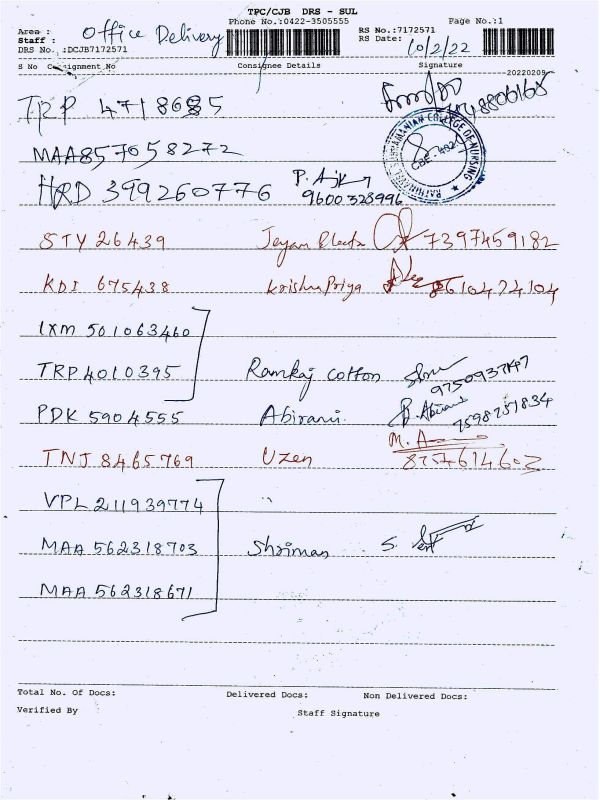 TPC/CJB DRS - SUL
Phone No.:0422-3505555 Page No.:1
Area : Office Delivery RS No.:7172571
Staff : RS Date: 10/2/22
DRS No. :DCJB7172571
S No Consignment No Consignee Details Signature
20220209
TRP 4718685
MAA857058272
HRD 399260776 P. Ajk 9600323996
STY 26439 Jeyam Electr 7397459182
KDI 675438 Krishna Priya 8610474104
IXM 501063460
TRP 4010395 Ramkaj cotton 9750937147
PDK 5904555 Abirami. B. Abirami 7598251834
TNJ 8465769 Uzen M. A 8757614602
VPL 211939774 "
MAA 562318703 Shriman S.
MAA 562318671
Total No. Of Docs: Delivered Docs: Non Delivered Docs:
Verified By Staff Signature